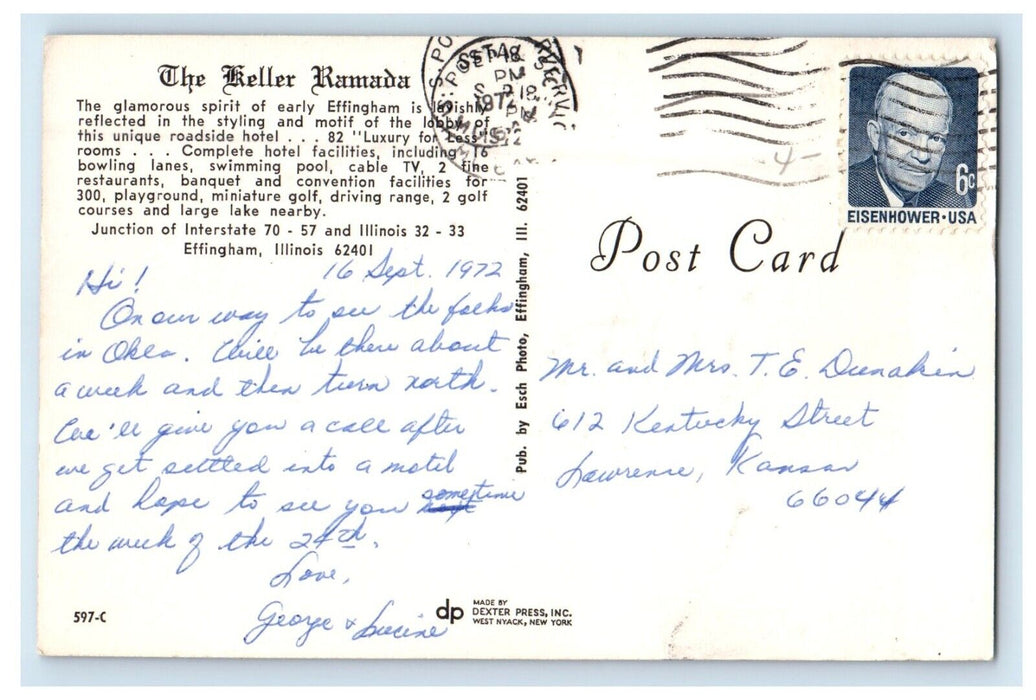 The Keller Ramada
The glamorous spirit of early Effingham is lavishly
reflected in the styling and motif of the lobby of
this unique roadside hotel . . . 82 "Luxury for Less"
rooms . . . Complete hotel facilities, including 16
bowling lanes, swimming pool, cable TV, 2 fine
restaurants, banquet and convention facilities for
300, playground, miniature golf, driving range, 2 golf
courses and large lake nearby.
Junction of Interstate 70 - 57 and Illinois 32 - 33
Effingham, Illinois 62401
16 Sept. 1972
Hi!
On our way to see the folks
in Okla. Will be there about
a week and then turn north.
We'll give you a call after
we get settled into a motel
and hope to see you sometime
the week of the 24th.
Love,
George & Lucine
597-C
Pub. by Esch Photo, Effingham, Ill. 62401
dp
MADE BY
DEXTER PRESS, INC.
WEST NYACK, NEW YORK
PM
1972
-4-
6c
EISENHOWER·USA
Post Card
Mr. and Mrs. T. E. Dunakin
612 Kentucky Street
Lawrence, Kansas
66044